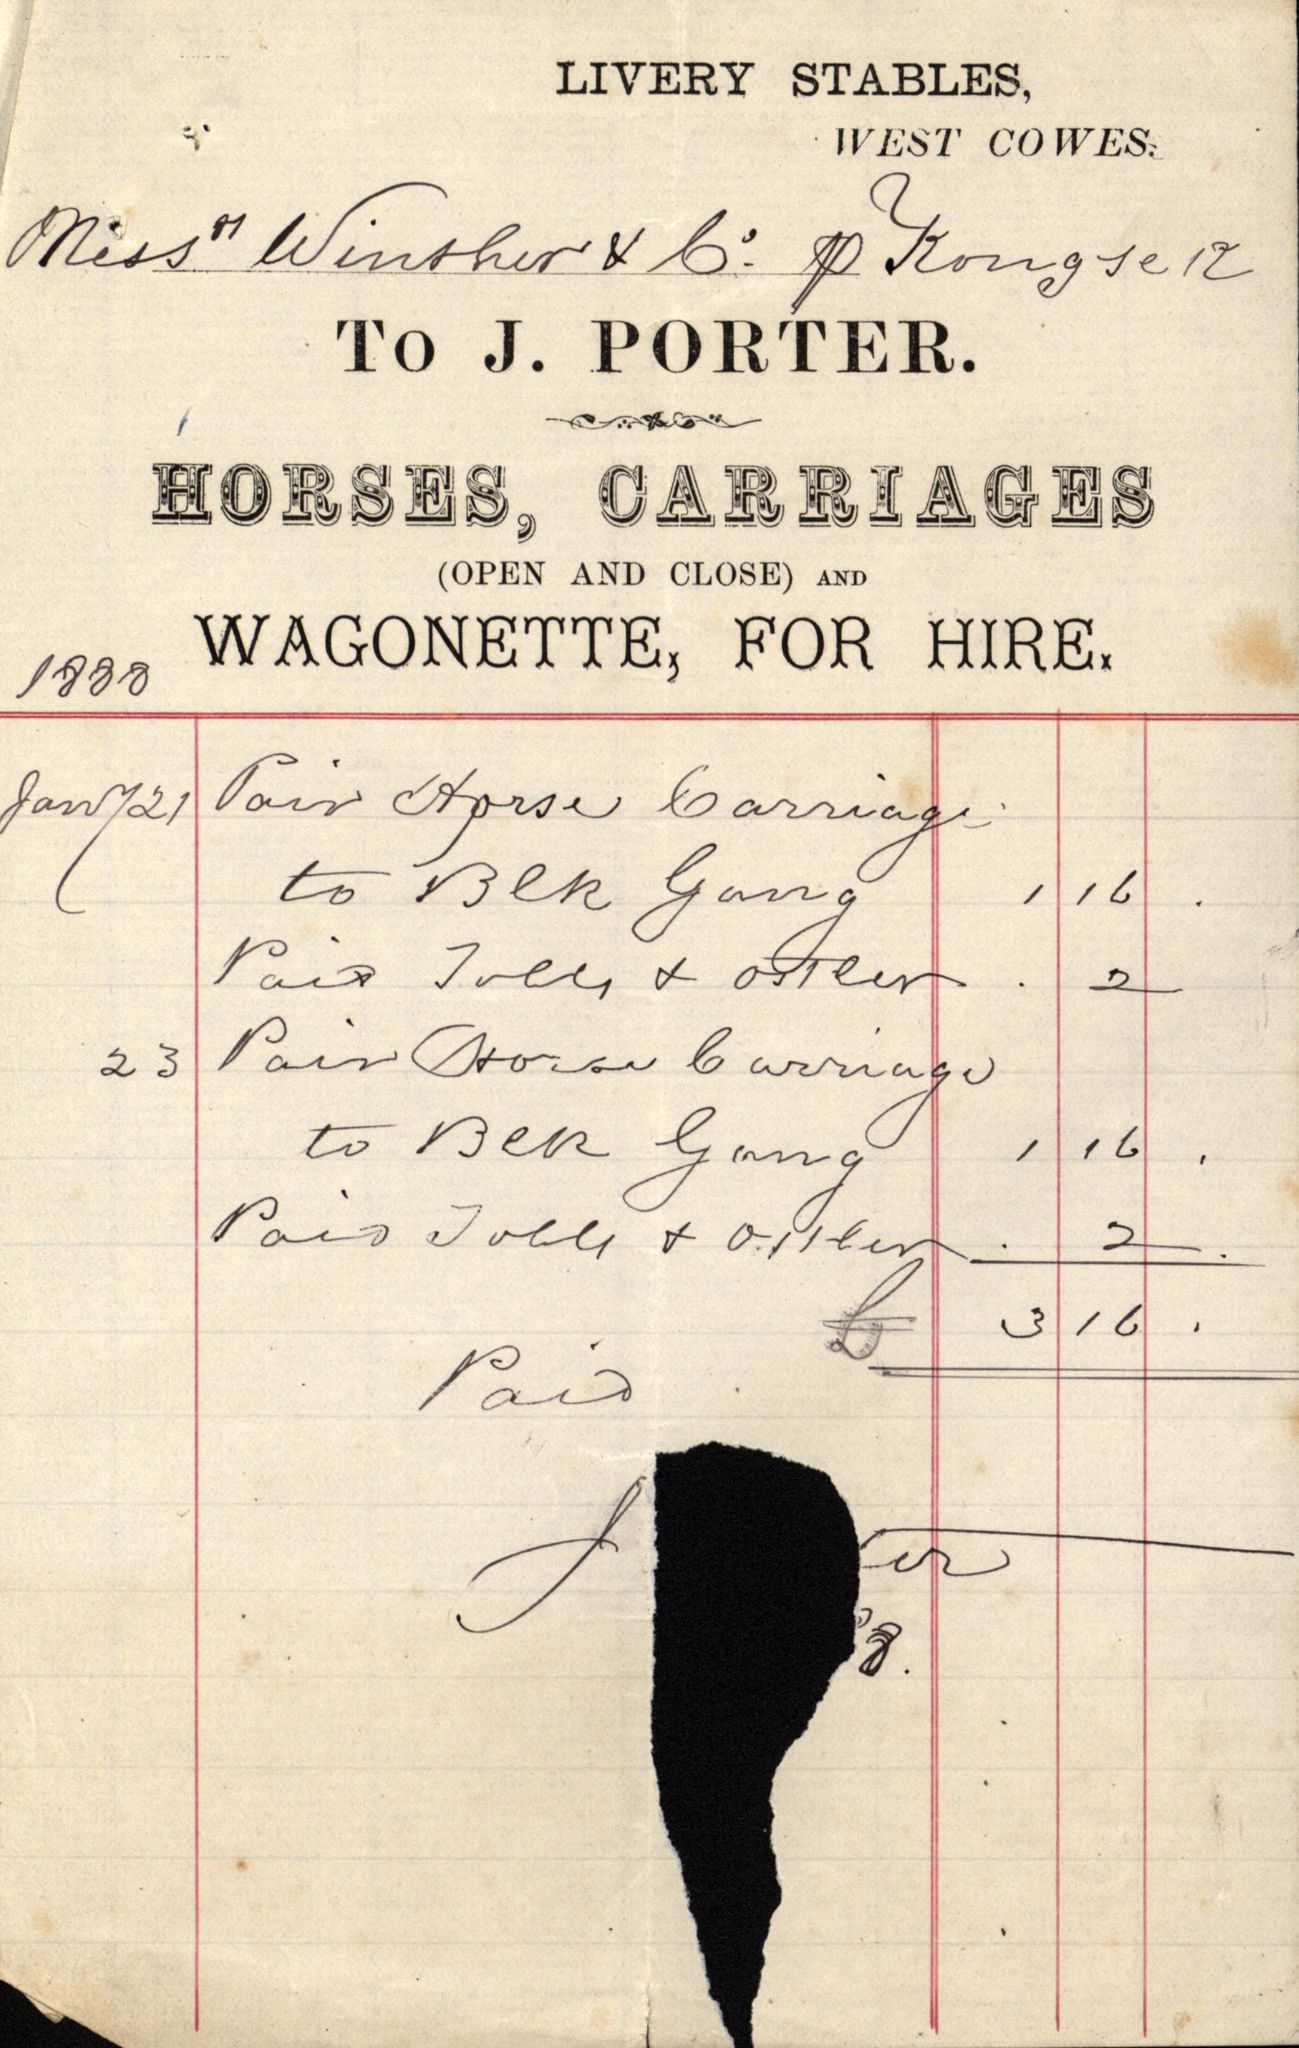 LIVERY STABLES,
WEST COWES.
Messrs Winther & Co. p Kongsek
TO J. PORTER.
HORSES, CARRIAGES
(OPEN AND CLOSE) AND
WAGONETTE, FOR HIRE.
1888
Jany 21 Pair Horse Carriage
to Blk Gang 1 16 .
Paid Tolls & ostler . 2 —
23 Pair Horse Carriage
to Blk Gang 1 16 .
Paid Tolls & Ostler . 2 .
£ 3 16 .
Paid
J er
8.